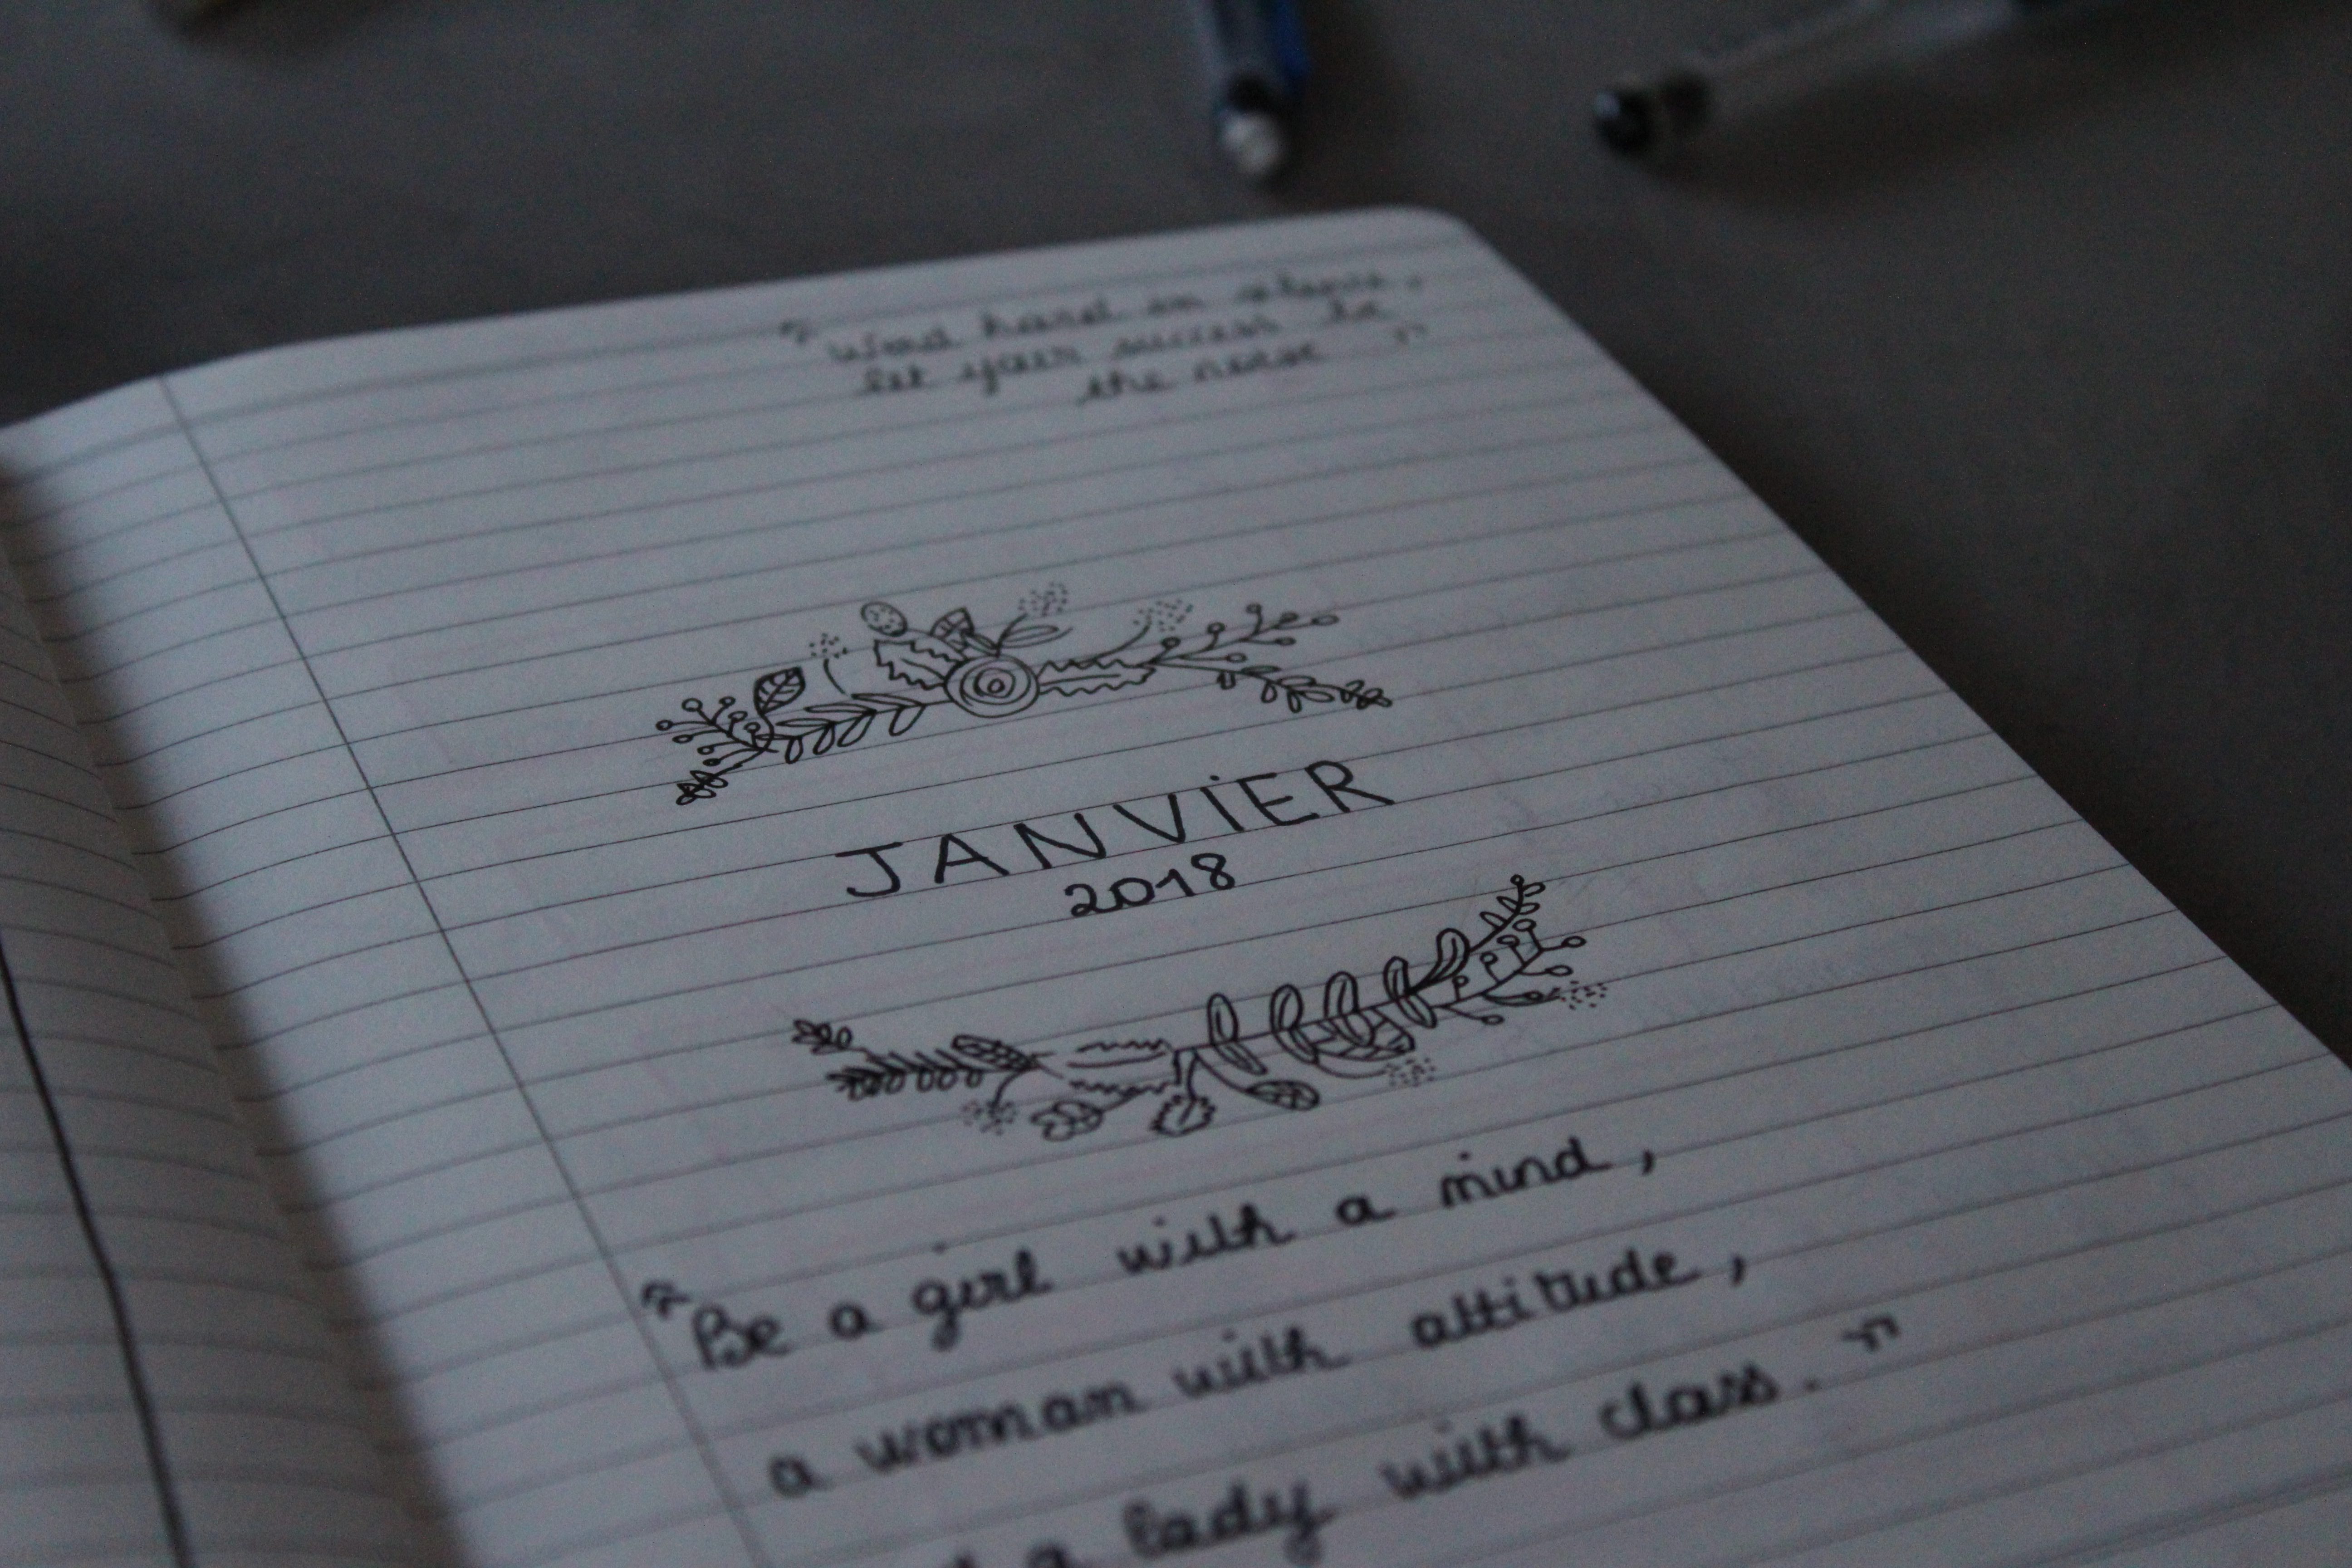 " Work hard in silence,
let your success be
the noise "
JANVIER
2018
" Be a girl with a mind,
a woman with attitude,
a lady with class. "